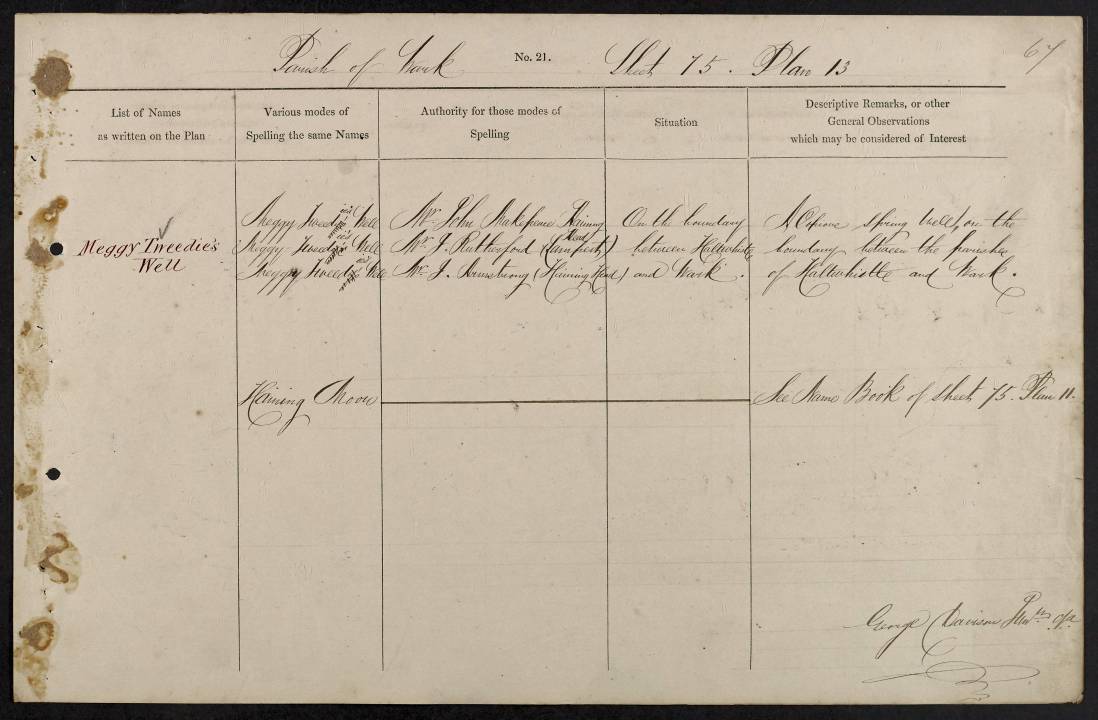 Parish of Wark No. 21. Sheet 75. Plan 13
67
List of Names
as written on the Plan
Various modes of
Spelling the same Names
Authority for those modes of
Spelling
Situation
Descriptive Remarks, or other
General Observations
which may be considered of Interest
Meggy Tweedie's
Well
Meggy Tweedie's Well
Meggy Tweedie's Well
Meggy Tweedie's Well
Mr. John Makepeace Haining
Head
Mr. J. Rutterford
Mr. J. Armstrong (Haining Head)
On the boundary
between Haltwhistle
and Wark.
A Copious spring well, on the
boundary between the parishes
of Haltwhistle and Wark.
Haining Moor
See Name Book of sheet 75. Plan 11.
George Davison